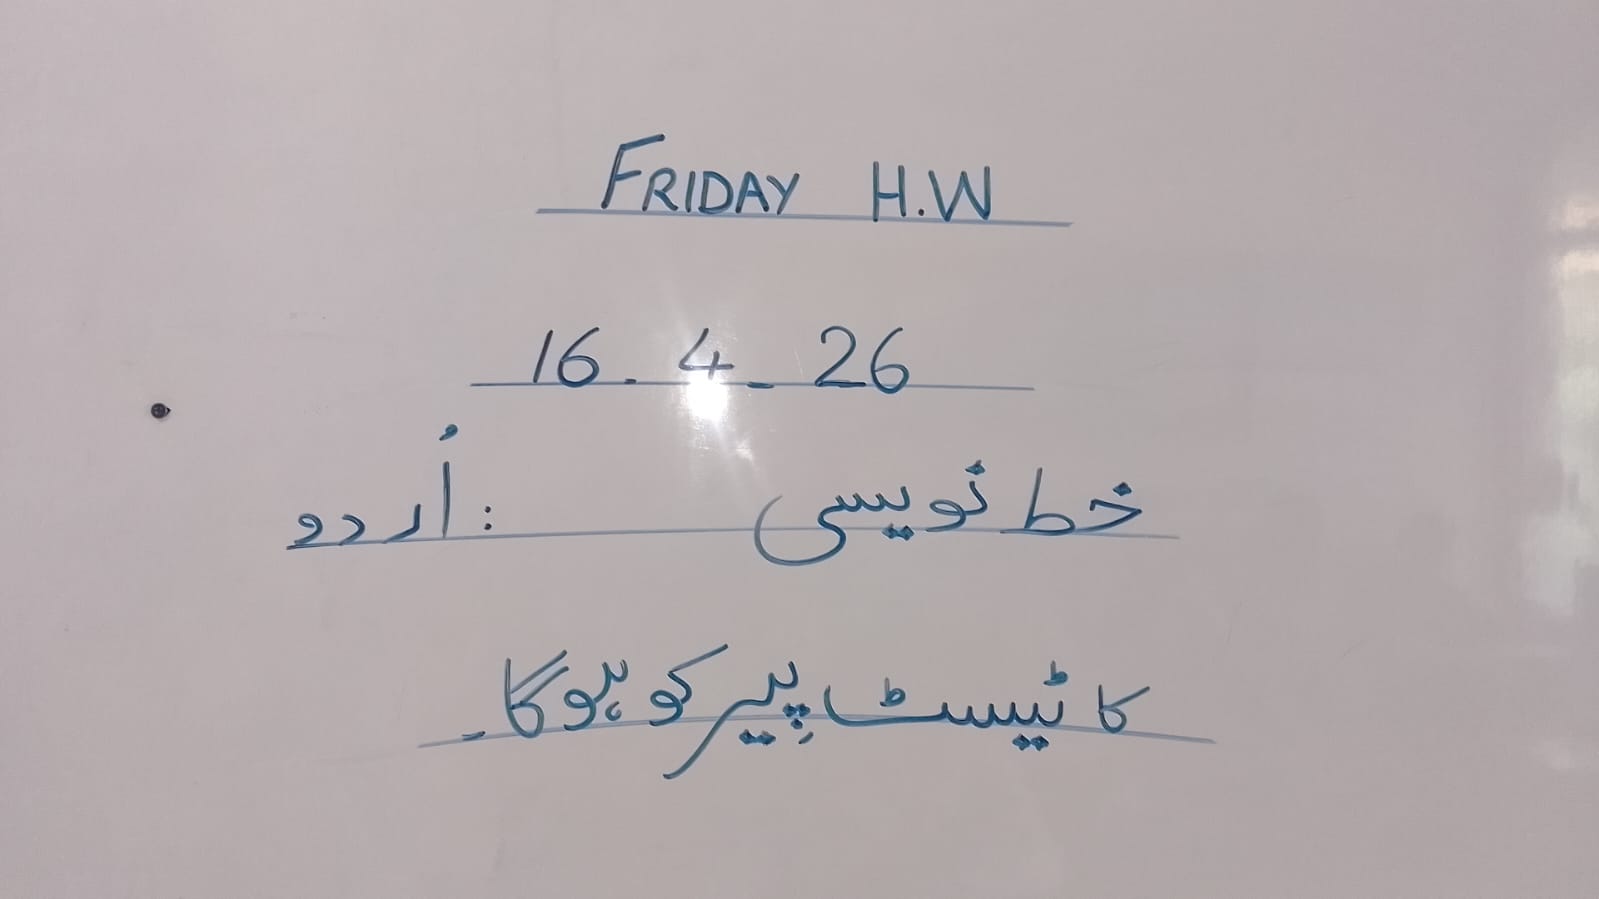 FRIDAY H.W
16.4-26
خط نویسی : اُردو
کا ٹیسٹ پِیر کو ہوگا۔